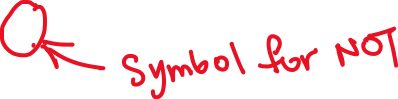 Symbol for NOT